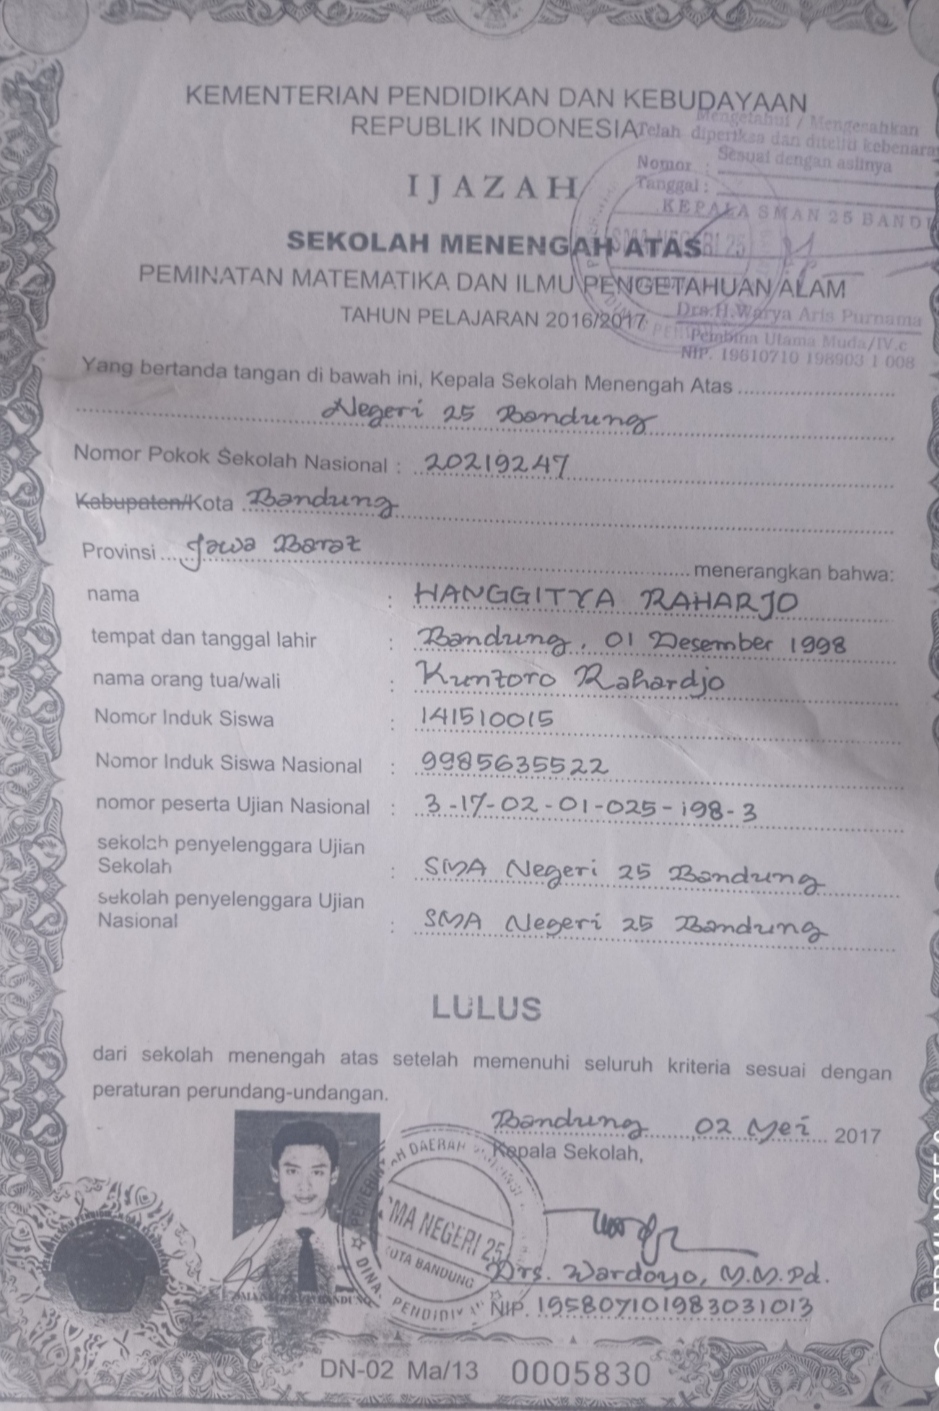 KEMENTERIAN PENDIDIKAN DAN KEBUDAYAAN
REPUBLIK INDONESIA
Mengetahui / Mengesahkan
Telah diperiksa dan diteliti kebenara
Sesuai dengan aslinya
Nomor :
Tanggal :
KEPALA SMAN 25 BANDU
IJAZAH
SMA NEGERI 25
SEKOLAH MENENGAH ATAS
PEMINATAN MATEMATIKA DAN ILMU PENGETAHUAN ALAM
TAHUN PELAJARAN 2016/2017
Drs.H.Warya Aris Purnama
Pembina Utama Muda/IV.c
NIP. 19610710 198903 1 008
Yang bertanda tangan di bawah ini, Kepala Sekolah Menengah Atas
Negeri 25 Bandung
Nomor Pokok Sekolah Nasional : 20219247
Kabupaten/Kota Bandung
Provinsi Jawa Barat menerangkan bahwa:
nama : HANGGITYA RAHARJO
tempat dan tanggal lahir : Bandung, 01 Desember 1998
nama orang tua/wali : Kuntoro Rahardjo
Nomor Induk Siswa : 141510015
Nomor Induk Siswa Nasional : 9985635522
nomor peserta Ujian Nasional : 3-17-02-01-025-198-3
sekolah penyelenggara Ujian
Sekolah : SMA Negeri 25 Bandung
sekolah penyelenggara Ujian
Nasional : SMA Negeri 25 Bandung
LULUS
dari sekolah menengah atas setelah memenuhi seluruh kriteria sesuai dengan
peraturan perundang-undangan.
Bandung, 02 Mei 2017
Kepala Sekolah,
MA NEGERI 25
KOTA BANDUNG
Drs. Wardoyo, M.M.Pd.
NIP. 195807101983031013
DN-02 Ma/13 0005830